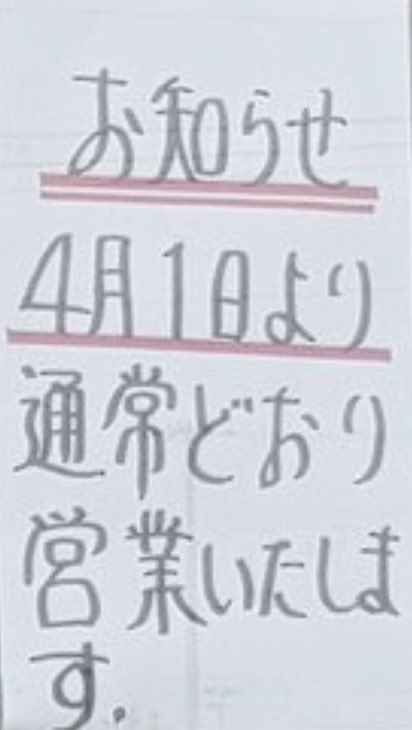 お知らせ
4月1日より
通常どおり
営業いたしま
す.